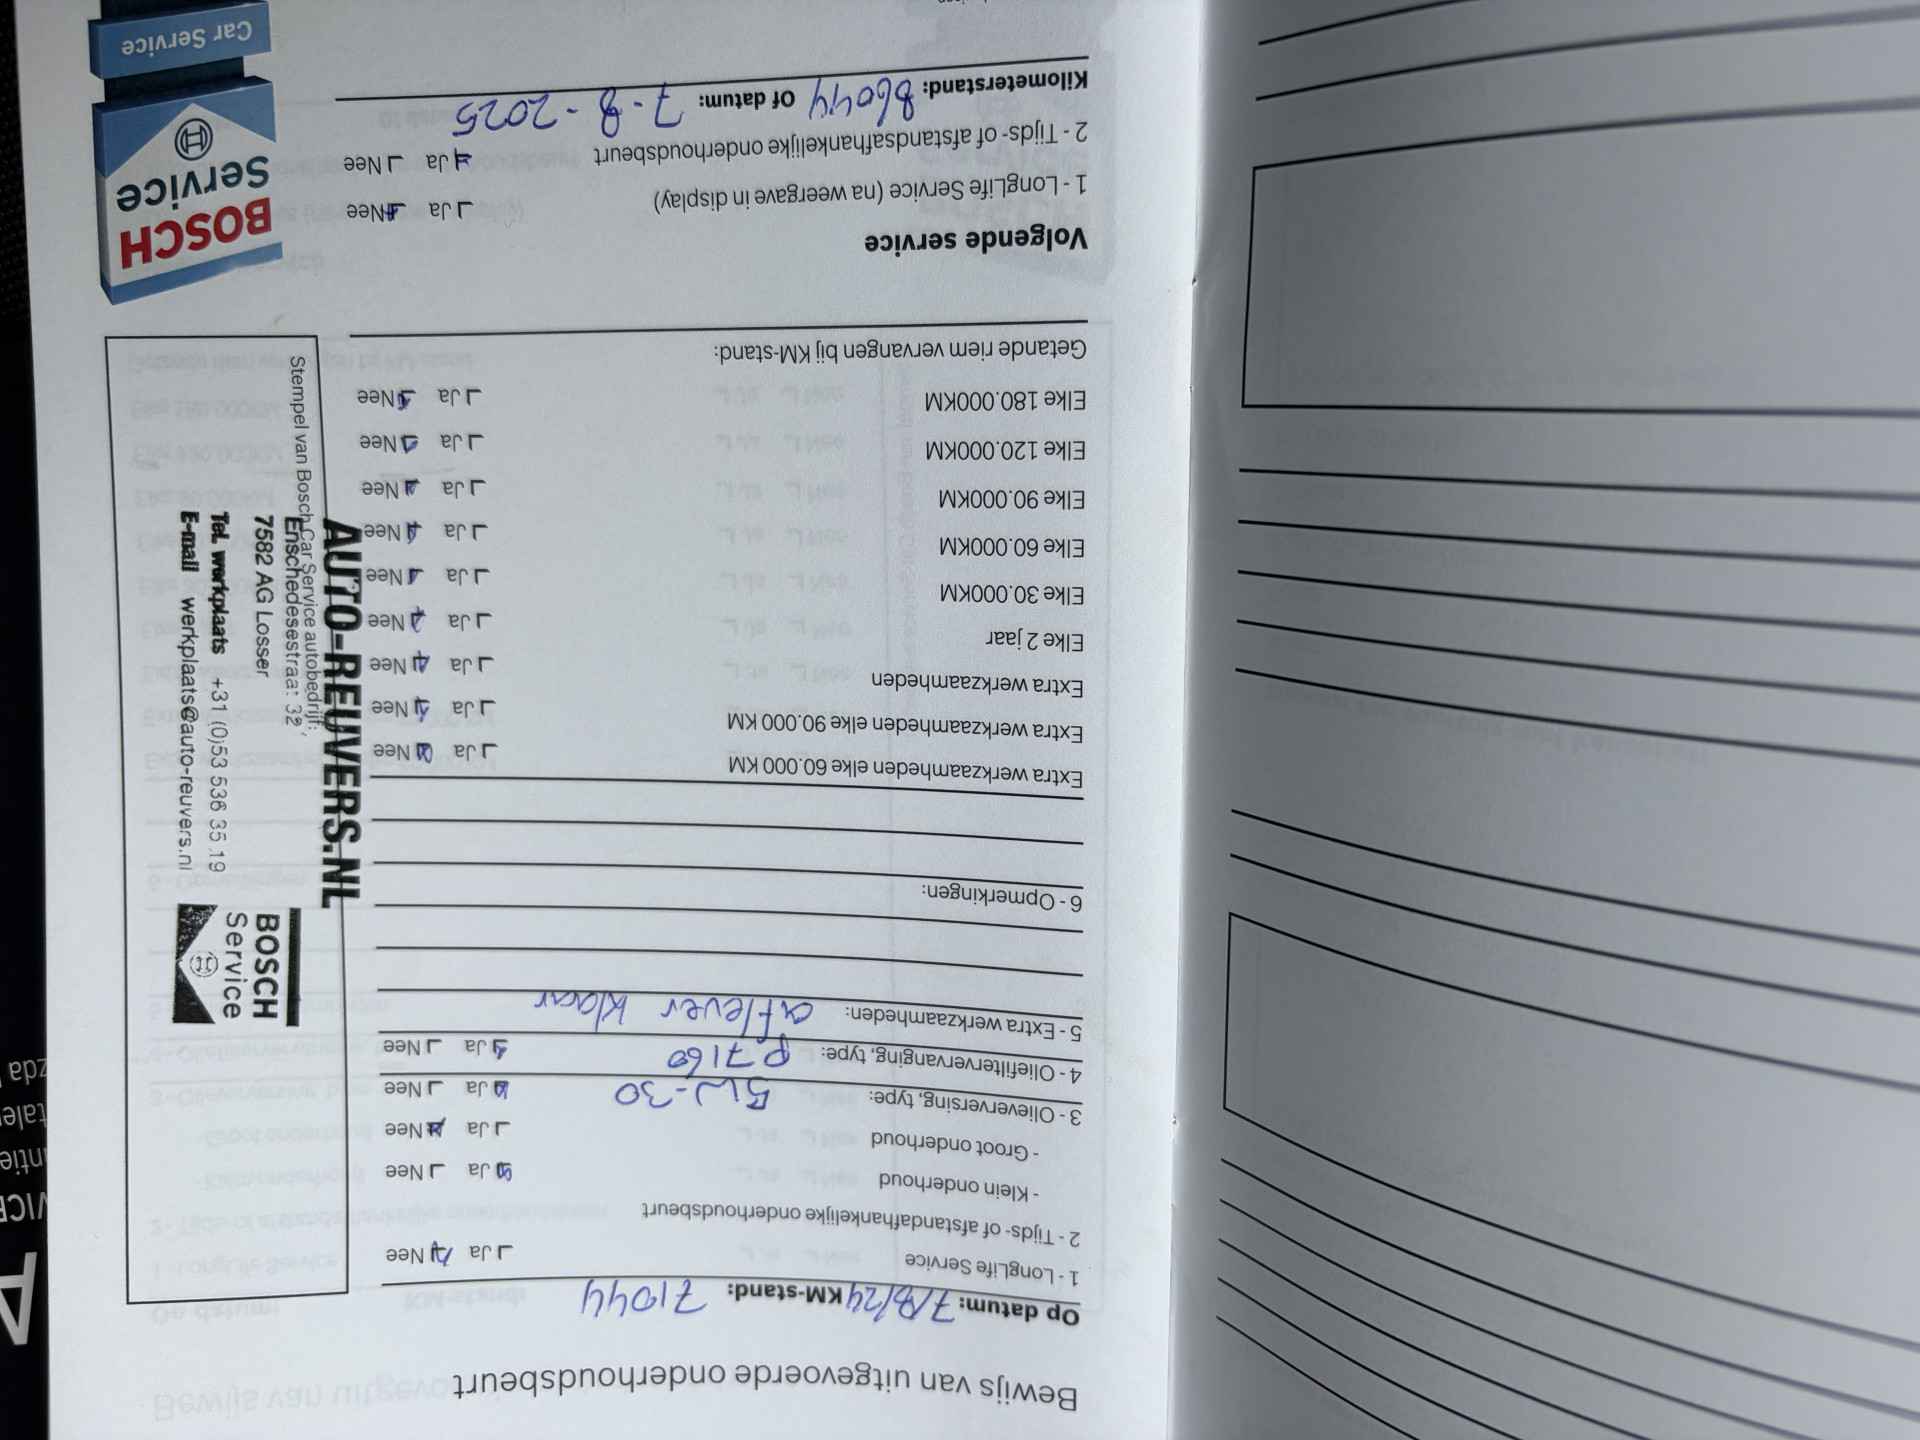 Bewijs van uitgevoerde onderhoudsbeurt
Op datum: 7/8/24 KM-stand: 71044
1 - LongLife Service Ja Nee
2 - Tijds- of afstandafhankelijke onderhoudsbeurt
- Klein onderhoud Ja Nee
- Groot onderhoud Ja Nee
3 - Olieverversing, type: 5W-30 Ja Nee
4 - Oliefiltervervanging, type: P7160 Ja Nee
5 - Extra werkzaamheden: aflever klaar
6 - Opmerkingen:
Extra werkzaamheden elke 60.000 KM Ja Nee
Extra werkzaamheden elke 90.000 KM Ja Nee
Extra werkzaamheden Ja Nee
Elke 2 jaar Ja Nee
Elke 30.000KM Ja Nee
Elke 60.000KM Ja Nee
Elke 90.000KM Ja Nee
Elke 120.000KM Ja Nee
Elke 180.000KM Ja Nee
Getande riem vervangen bij KM-stand:
Volgende service
1 - LongLife Service (na weergave in display) Ja Nee
2 - Tijds- of afstandsafhankelijke onderhoudsbeurt Ja Nee
Kilometerstand: 86044 Of datum: 7-8-2025
AUTO-REUVERS.NL
Stempel van Bosch Car Service autobedrijf:
Enschedesestraat 32
7582 AG Losser
Tel. werkplaats +31 (0)53 536 35 19
E-mail werkplaats@auto-reuvers.nl
BOSCH
Service
BOSCH
Service
Car Service